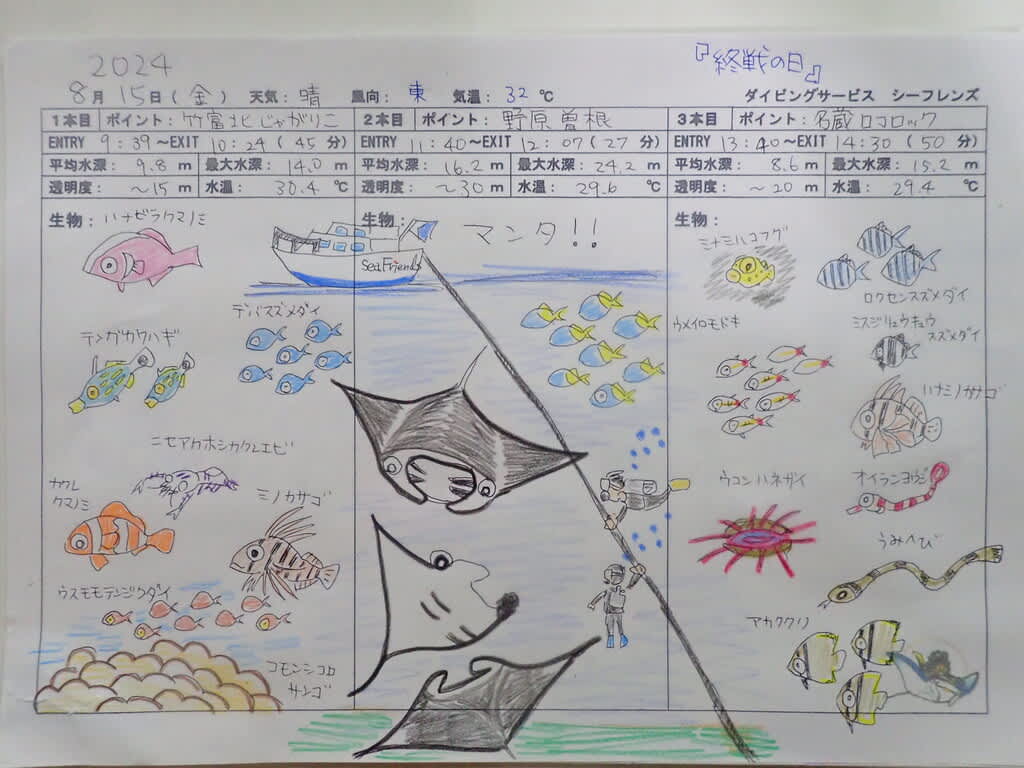 2024
『終戦の日』
8月 15日(金) 天気: 晴 風向: 東 気温: 32 ℃ ダイビングサービス シーフレンズ
1本目 ポイント: 竹富北じゃがりこ
ENTRY 9:39~EXIT 10:24 (45 分)
平均水深: 9.8 m 最大水深: 14.0 m
透明度: ~15 m 水温: 30.4 ℃
生物: ハナビラクマノミ
デバスズメダイ
テングカワハギ
ニセアカホシカクレエビ
カクレ
クマノミ
ミノカサゴ
ウスモモテンジクダイ
コモンシコロ
サンゴ
2本目 ポイント: 野原曽根
ENTRY 11:40~EXIT 12:07 (27 分)
平均水深: 16.2 m 最大水深: 24.2 m
透明度: ~30 m 水温: 29.6 ℃
生物: マンタ!!
SeaFriends
3本目 ポイント: 名蔵ロコロック
ENTRY 13:40~EXIT 14:30 (50 分)
平均水深: 8.6 m 最大水深: 15.2 m
透明度: ~20 m 水温: 29.4 ℃
生物:
ミナミハコフグ
ロクセンスズメダイ
ウメイロモドキ
ミスジリュウキュウ
スズメダイ
ハナミノカサゴ
ウコンハネガイ
オイランヨウジ
うみへび
アカククリ